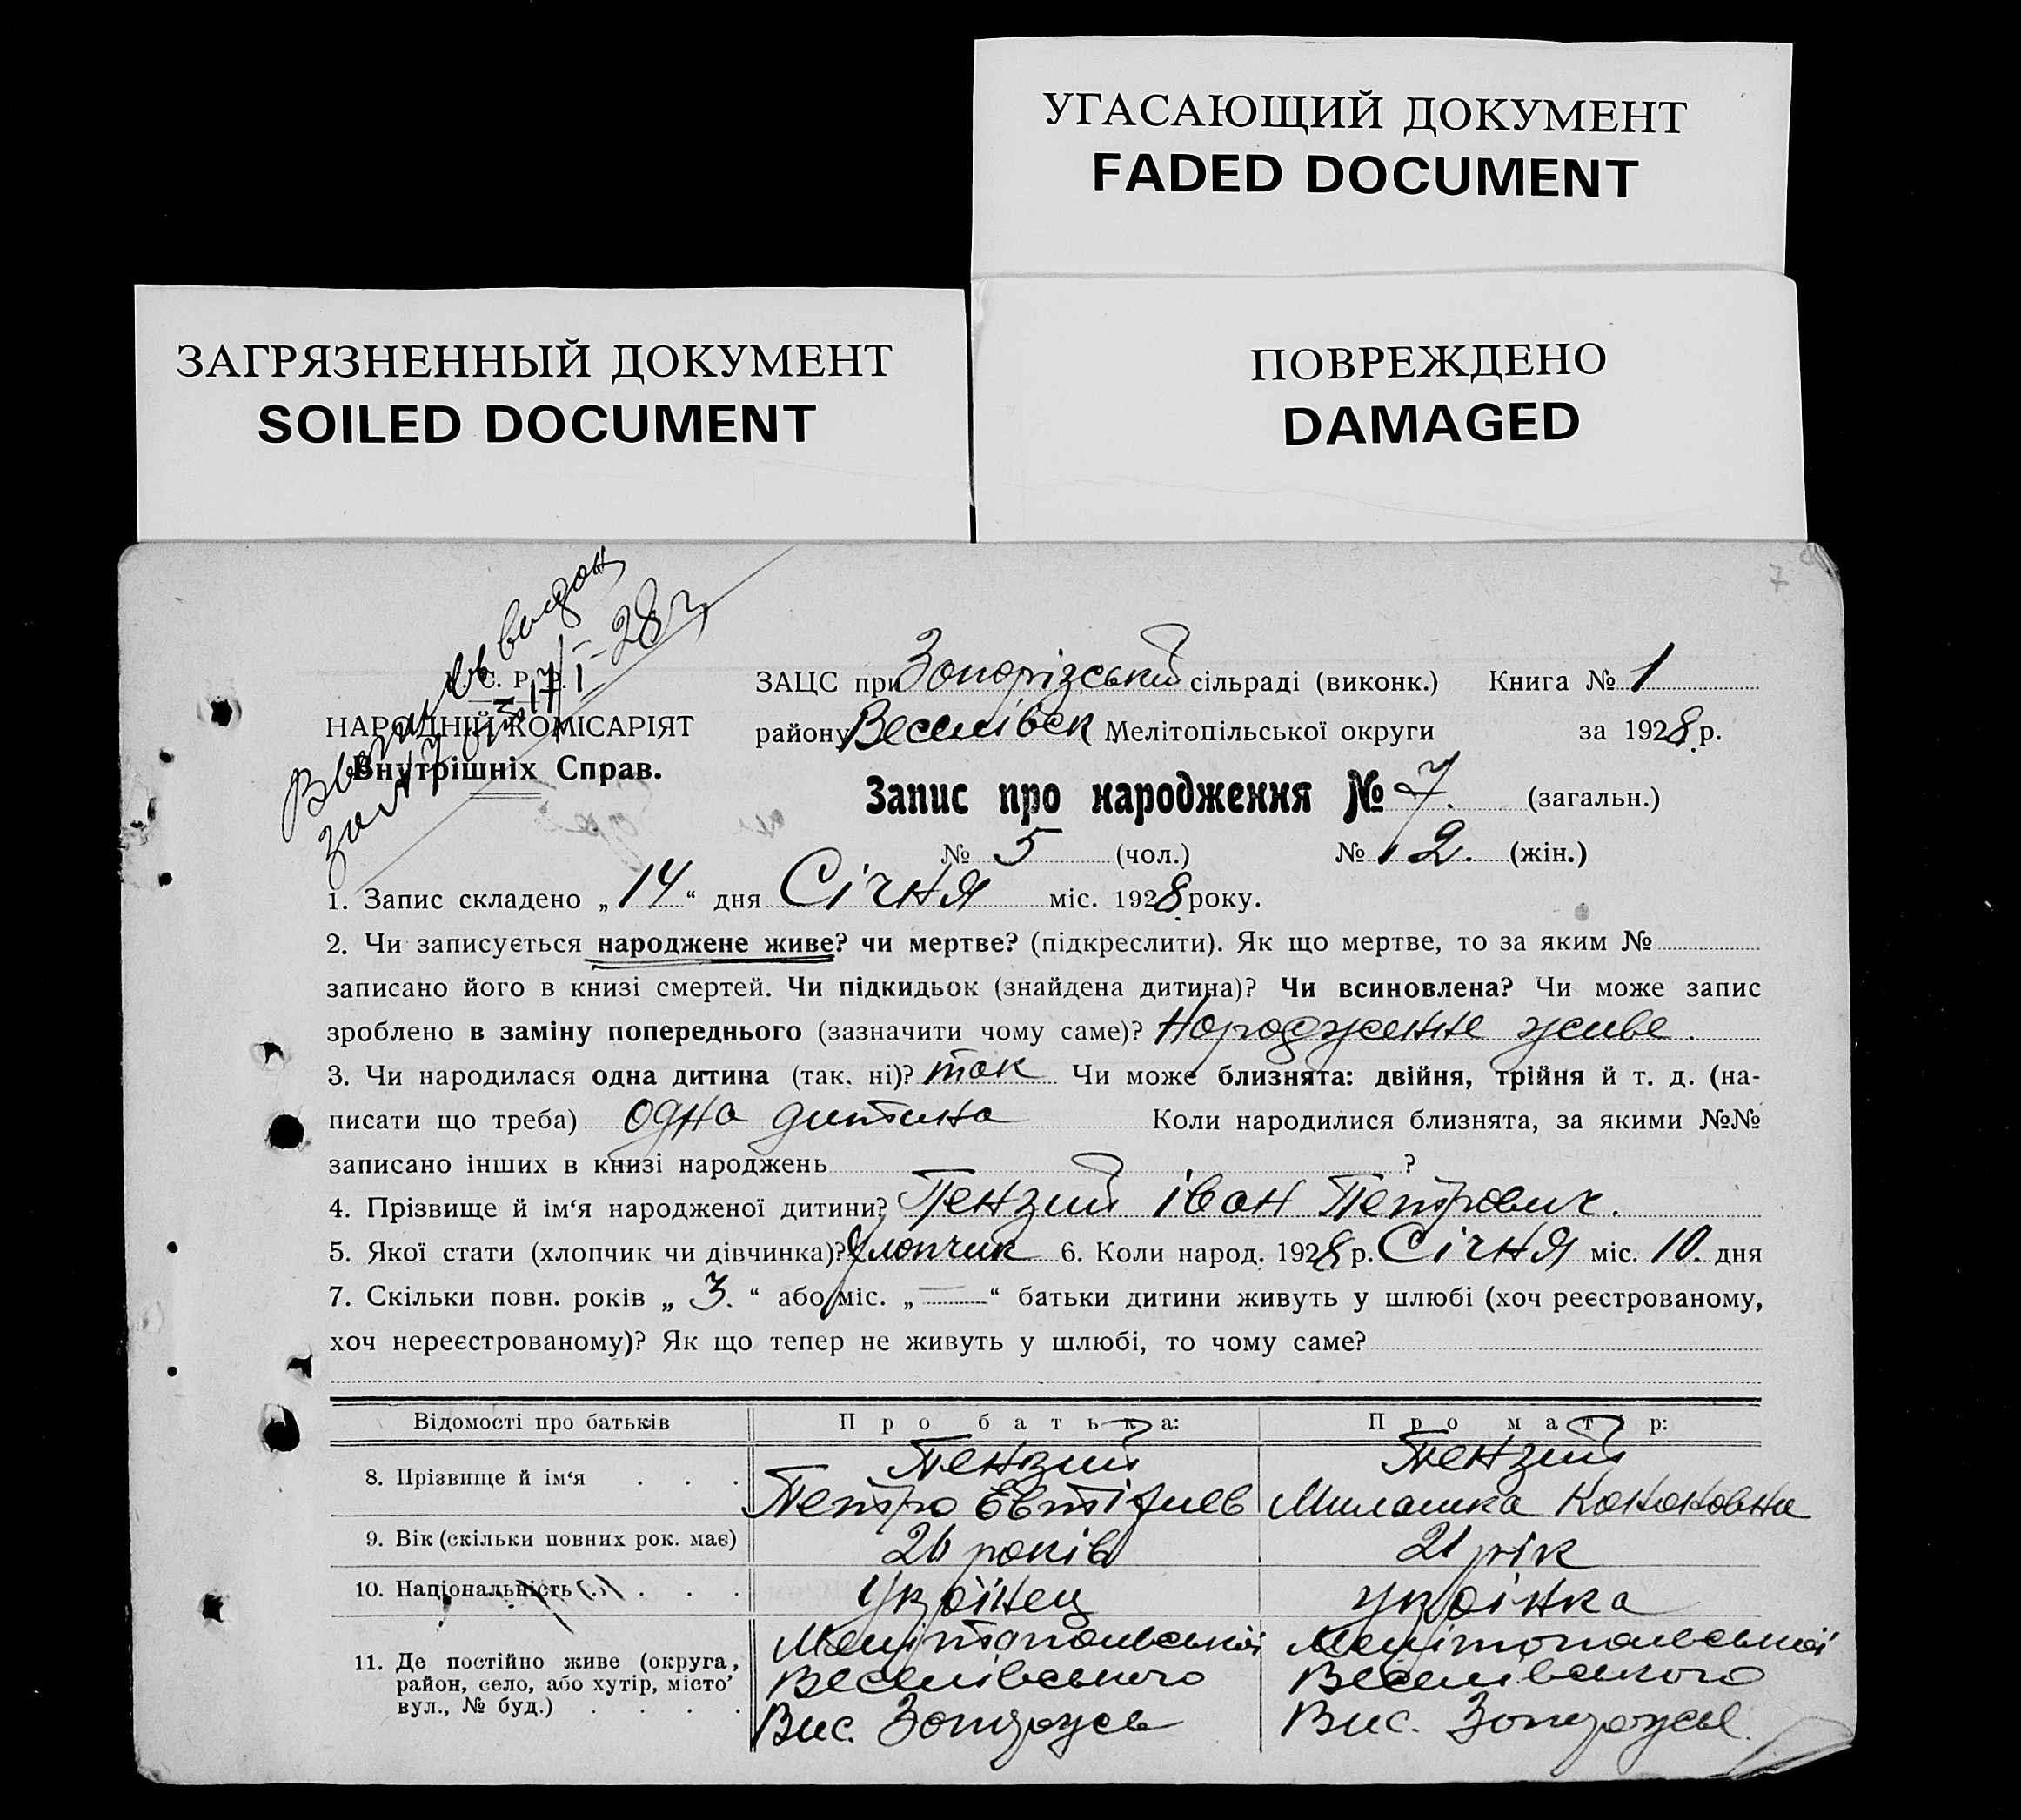 УГАСАЮЩИЙ ДОКУМЕНТ
FADED DOCUMENT
ЗАГРЯЗНЕННЫЙ ДОКУМЕНТ
SOILED DOCUMENT
ПОВРЕЖДЕНО
DAMAGED
7
видан
17/I-28 р
НАРОДНІЙ КОМІСАРІЯТ
Внутрішніх Справ.
ЗАЦС при Запорізській сільраді (виконк.) Книга № 1
району Веселівск Мелітопільської округи за 1928 р.
Запис про народження № 7. (загальн.)
№ 5 (чол.) № 2. (жін.)
1. Запис складено „14“ дня Січня міс. 1928 року.
2. Чи записується народжене живе? чи мертве? (підкреслити). Як що мертве, то за яким №
записано його в книзі смертей. Чи підкидьок (знайдена дитина)? Чи всиновлена? Чи може запис
зроблено в заміну попереднього (зазначити чому саме)? Народженне живе.
3. Чи народилася одна дитина (так. ні)? так Чи може близнята: двійня, трійня й т. д. (на-
писати що треба) одна дитина Коли народилися близнята, за якими №№
записано інших в книзі народжень ?
4. Прізвище й ім‘я народженої дитини? Пензий Іван Петрович.
5. Якої стати (хлопчик чи дівчинка)? Хлопчик 6. Коли народ. 1928 р. Січня міс. 10. дня
7. Скільки повн. років „3.“ або міс. „—“ батьки дитини живуть у шлюбі (хоч реєстрованому,
хоч нереєстрованому)? Як що тепер не живуть у шлюбі, то чому саме?
Відомості про батьків Про батька: Про матір:
8. Прізвище й ім‘я . . . Пензий Пензий
Петро Евтіфиев Милашка Кононовна
9. Вік (скільки повних рок. має) 26 років 21 рік
10. Національність . . . Українец Українка
11. Де постійно живе (округа, район, село, або хутір, місто’ вул., № буд.) . . . .
Мелітопольської Мелітопольської
Веселівського Веселівского
Вис. Вис.